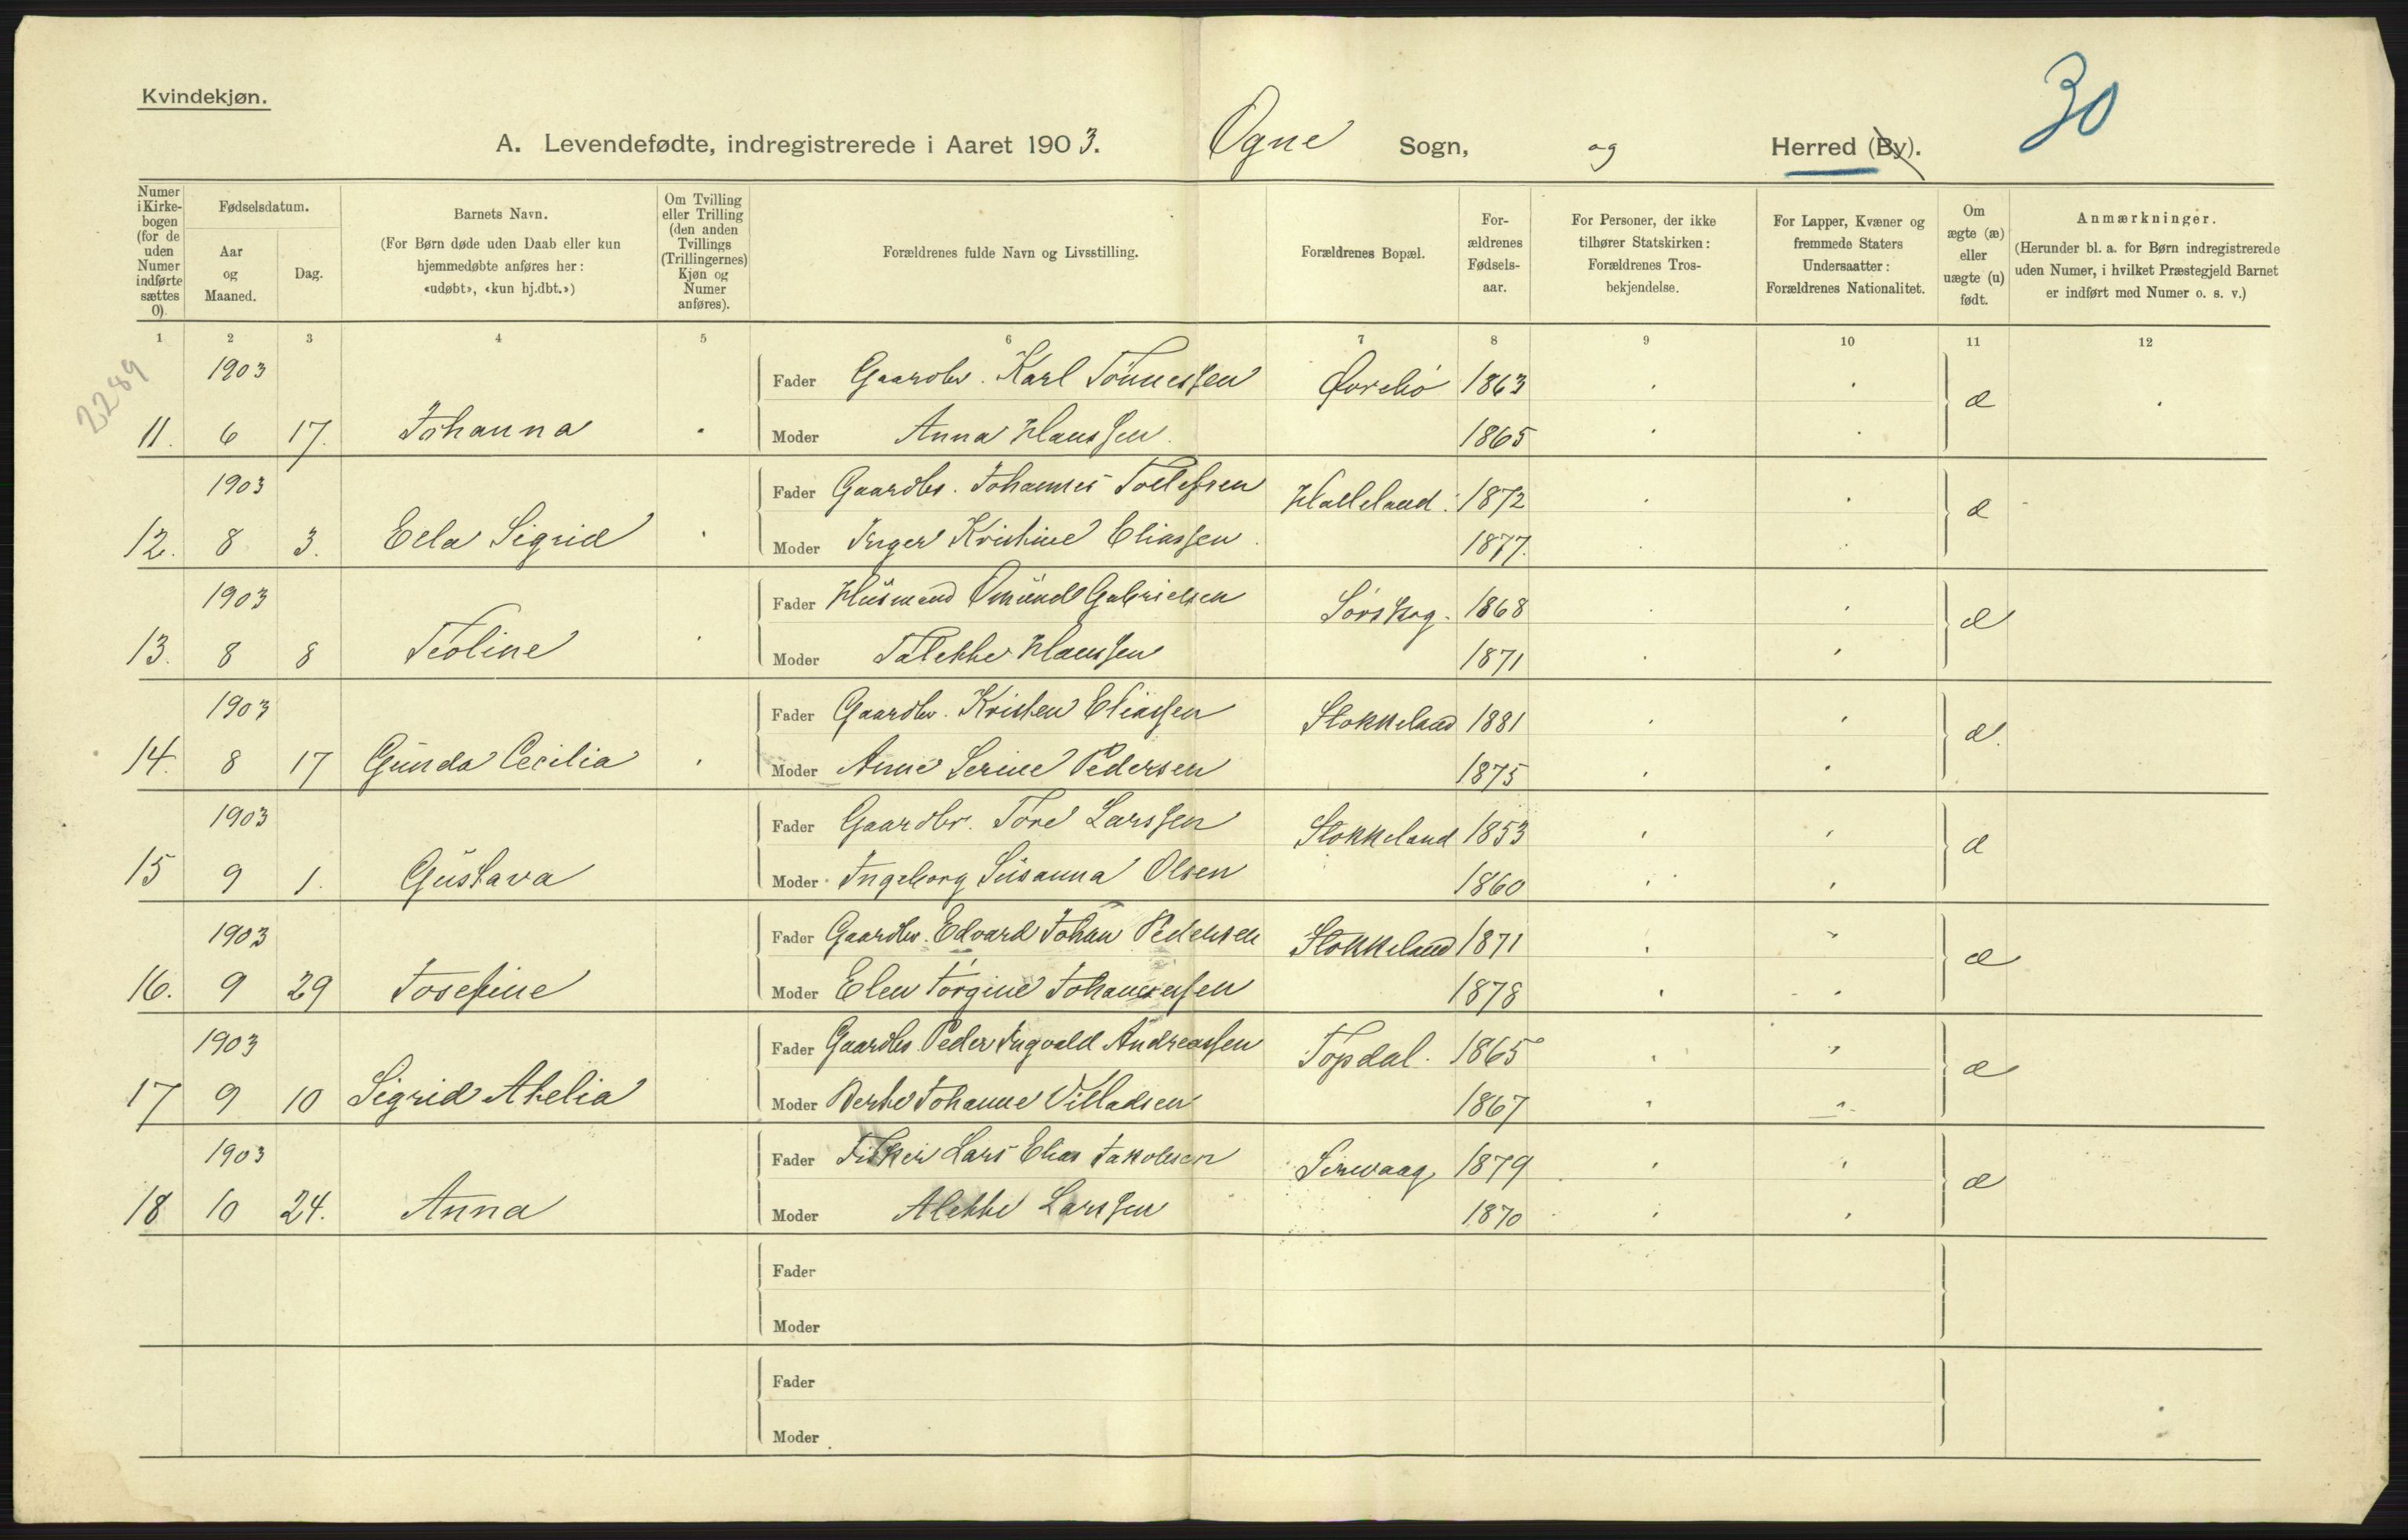 30
Kvindekjøn.
A. Levendefødte, indregistrerede i Aaret 1903. Ogne Sogn, og Herred (By).
Numer i Kirkebogen (for de uden Numer indførte sættes 0).
Fødselsdatum.
Aar og Maaned.
Dag.
Barnets Navn.
(For Børn døde uden Daab eller kun hjemmedøbte anføres her: «udøbt», «kun hj.dbt.»)
Om Tvilling eller Trilling (den anden Tvillings (Trillingernes) Kjøn og Numer anføres).
Forældrenes fulde Navn og Livsstilling.
Forældrenes Bopæl.
Forældrenes Fødselsaar.
For Personer, der ikke tilhører Statskirken: Forældrenes Trosbekjendelse.
For Lapper, Kvæner og fremmede Staters Undersaatter: Forældrenes Nationalitet.
Om ægte (æ) eller uægte (u) født.
Anmærkninger.
(Herunder bl. a. for Børn indregistrerede uden Numer, i hvilket Præstegjeld Barnet er indført med Numer o. s. v.)
1 2 3 4 5 6 7 8 9 10 11 12
2289
1903 Fader Gaardbr. Karl Tønnessen Øvrebø 1863 æ
11. 6 17. Johanna Moder Anna Hanssen. 1865
1903 Fader Gaardbr. Johannes Tollefsen Halleland. 1872 æ
12. 8 3. Ella Sigrid Moder Inger Kristine Eliassen. 1877.
1903 Fader Husmand Omund Gabrielsen Sørskog. 1868 æ
13. 8 8 Teoline Moder Talekke Hanssen 1871
1903 Fader Gaardbr. Kristen Eliassen Stokkeland 1881 æ.
14. 8 17 Gunda Cecilia Moder Anne Serine Pedersen 1875
1903 Fader Gaardbr. Tore Larssen Stokkeland 1853 æ
15 9 1. Gustava Moder Ingeborg Susanna Olsen 1860
1903 Fader Gaardbr. Edvard Johan Pedersen Stokkeland 1871 æ
16. 9 29 Josefine Moder Elen Jørgine Johannessen 1878
1903 Fader Gaardbr Peder Ingvald Andreassen Topdal. 1865 æ
17 9 10 Sigrid Atelia Moder Berte Johanne Villadsen 1867
1903 Fader Fisker Lars Elias Jakobsen Sirevaag 1879 æ
18 10 24. Anna Moder Alekke Larssen 1870
Fader
Moder
Fader
Moder